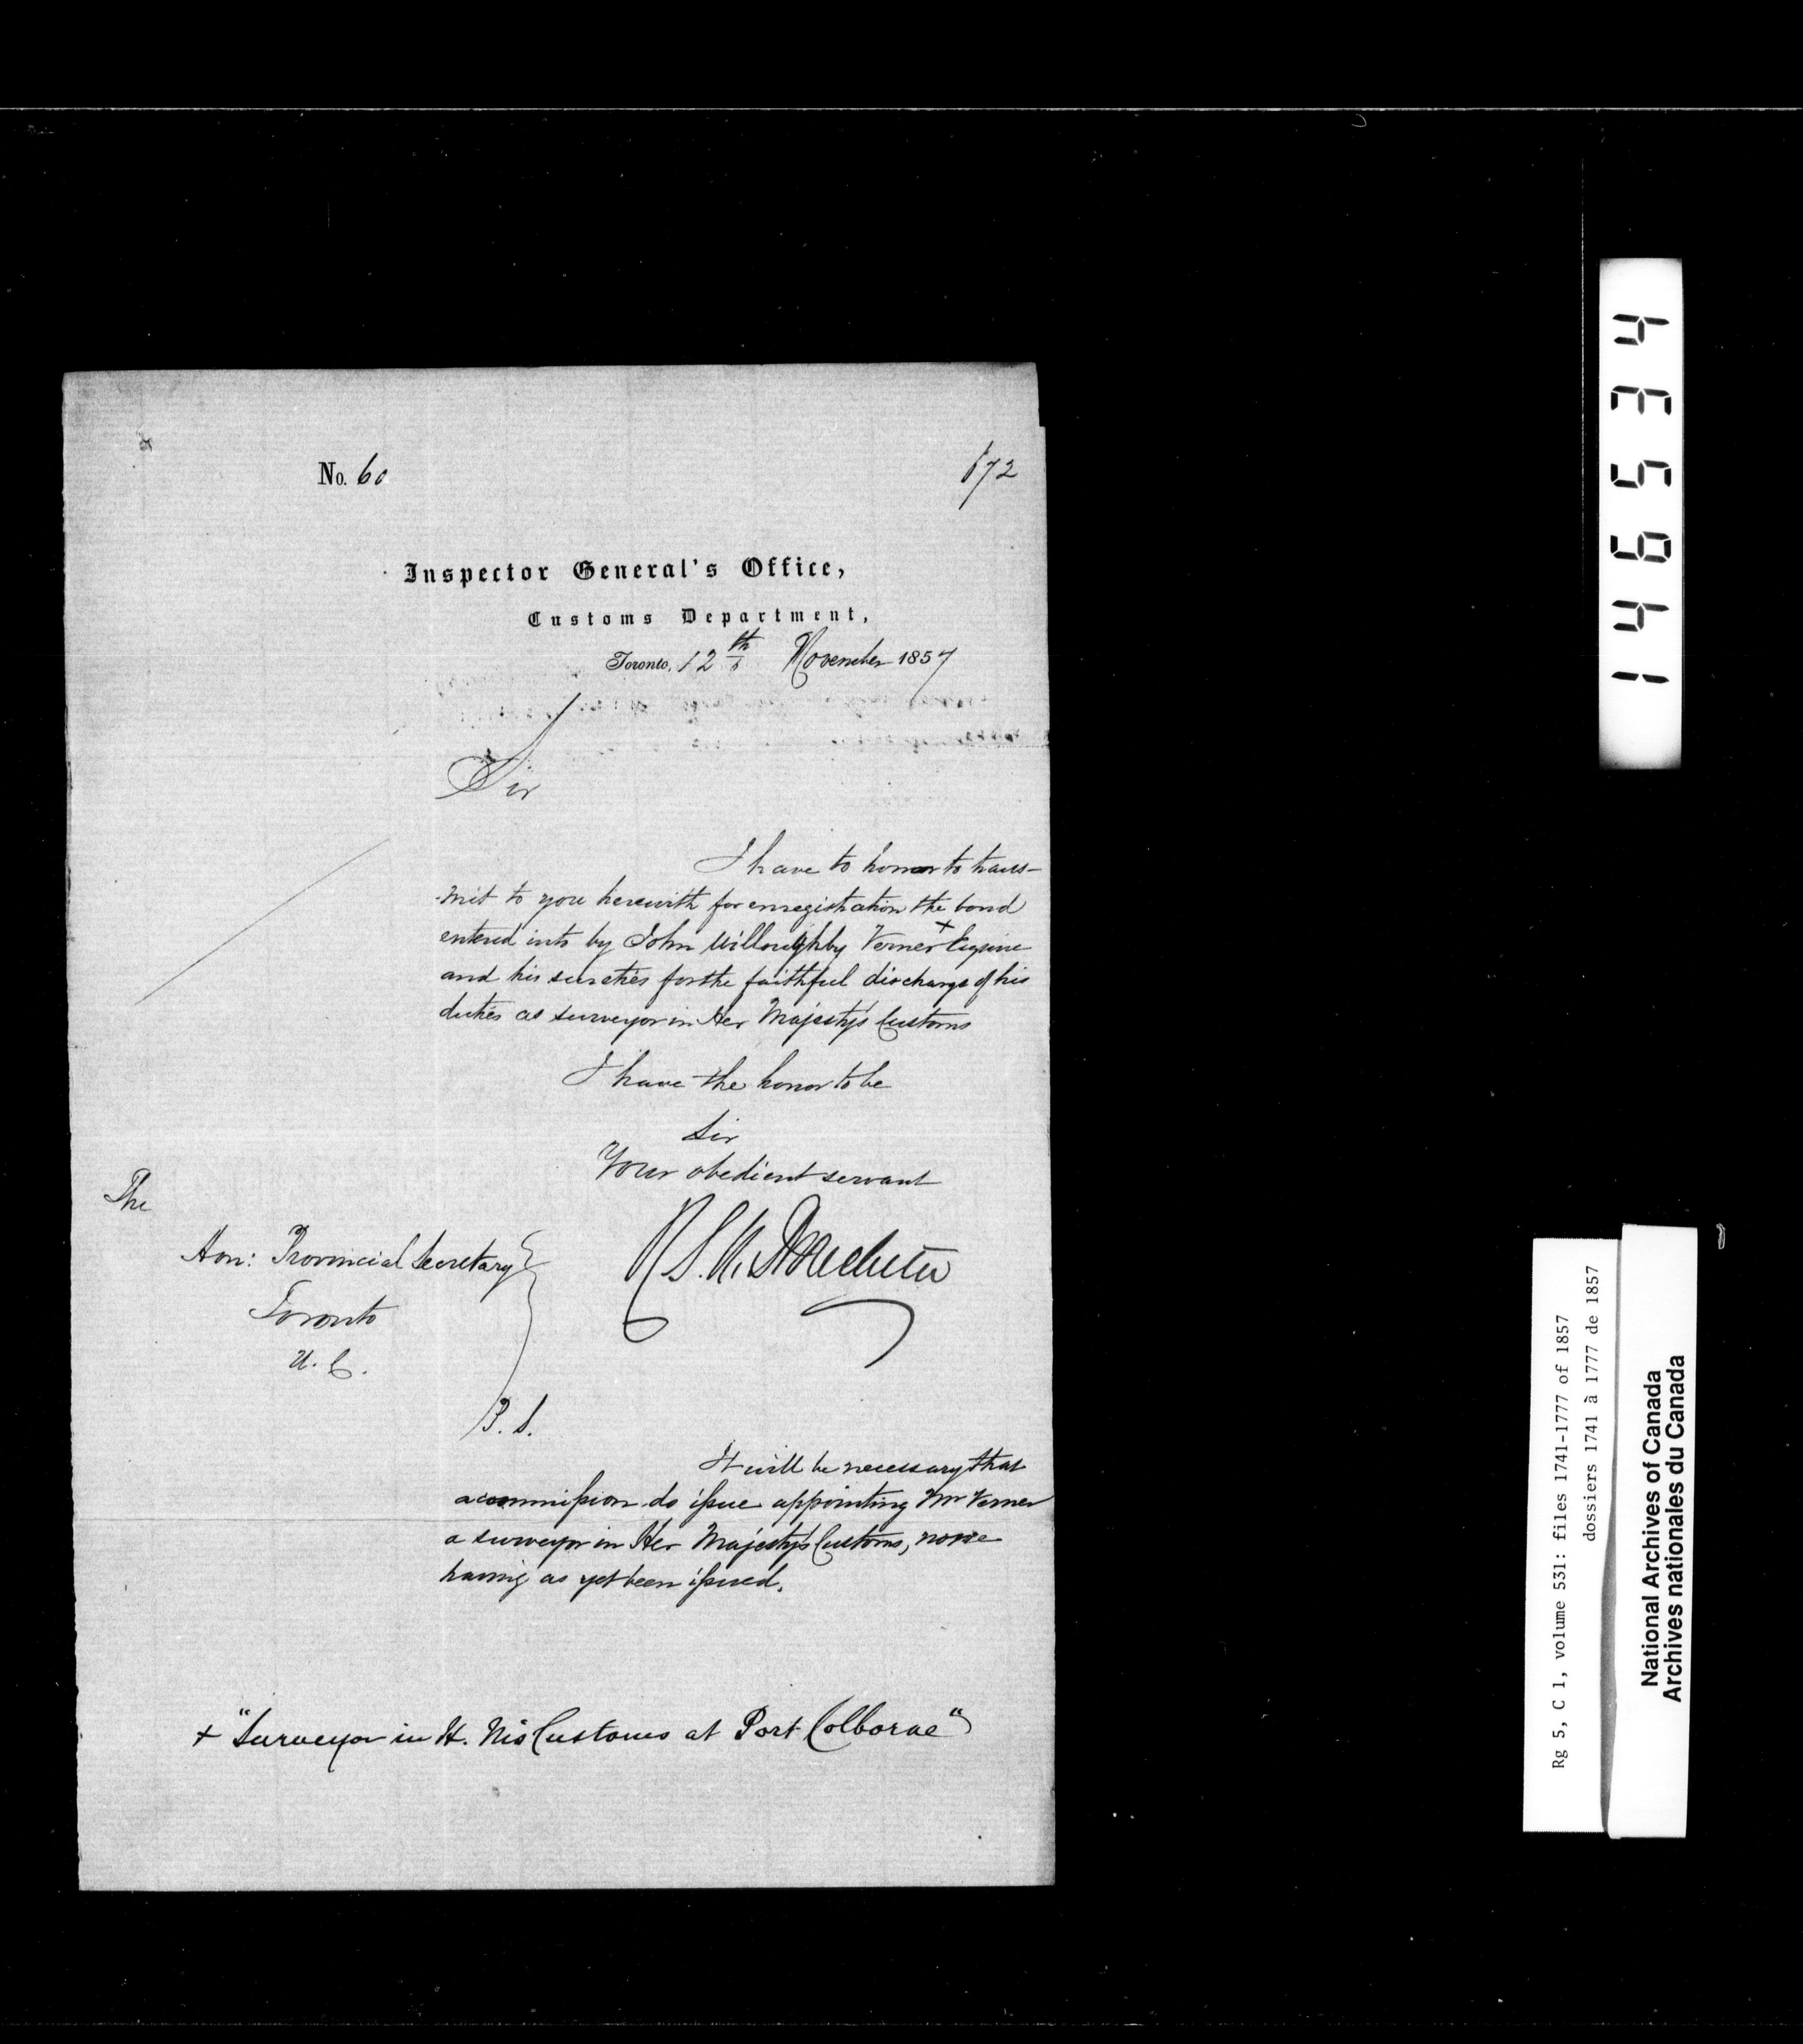 No. 60
672
Inspector General's Office,
Customs Department,
Toronto, 12th November 1857
Sir
I have to honor to trans-
-mit to you herewith for enregistration the bond
entered into by John Willoughby Verner + Esquire
and his sureties for the faithful discharge of his
duties as surveyor in Her Majesty's Customs
I have the honor to be
Sir
Your obedient servant
R. S. M. Bouchette
The
Hon: Provincial Secretary
Toronto
U. C.
P. S.
It will be necessary that
a commission do issue appointing Mr Verner
a surveyor in Her Majesty's Customs, none
having as yet been issued.
+ "Surveyor in H. M's Customs at Port Colborne"
146534
Rg 5, C 1, volume 531: files 1741-1777 of 1857
dossiers 1741 à 1777 de 1857
National Archives of Canada
Archives nationales du Canada